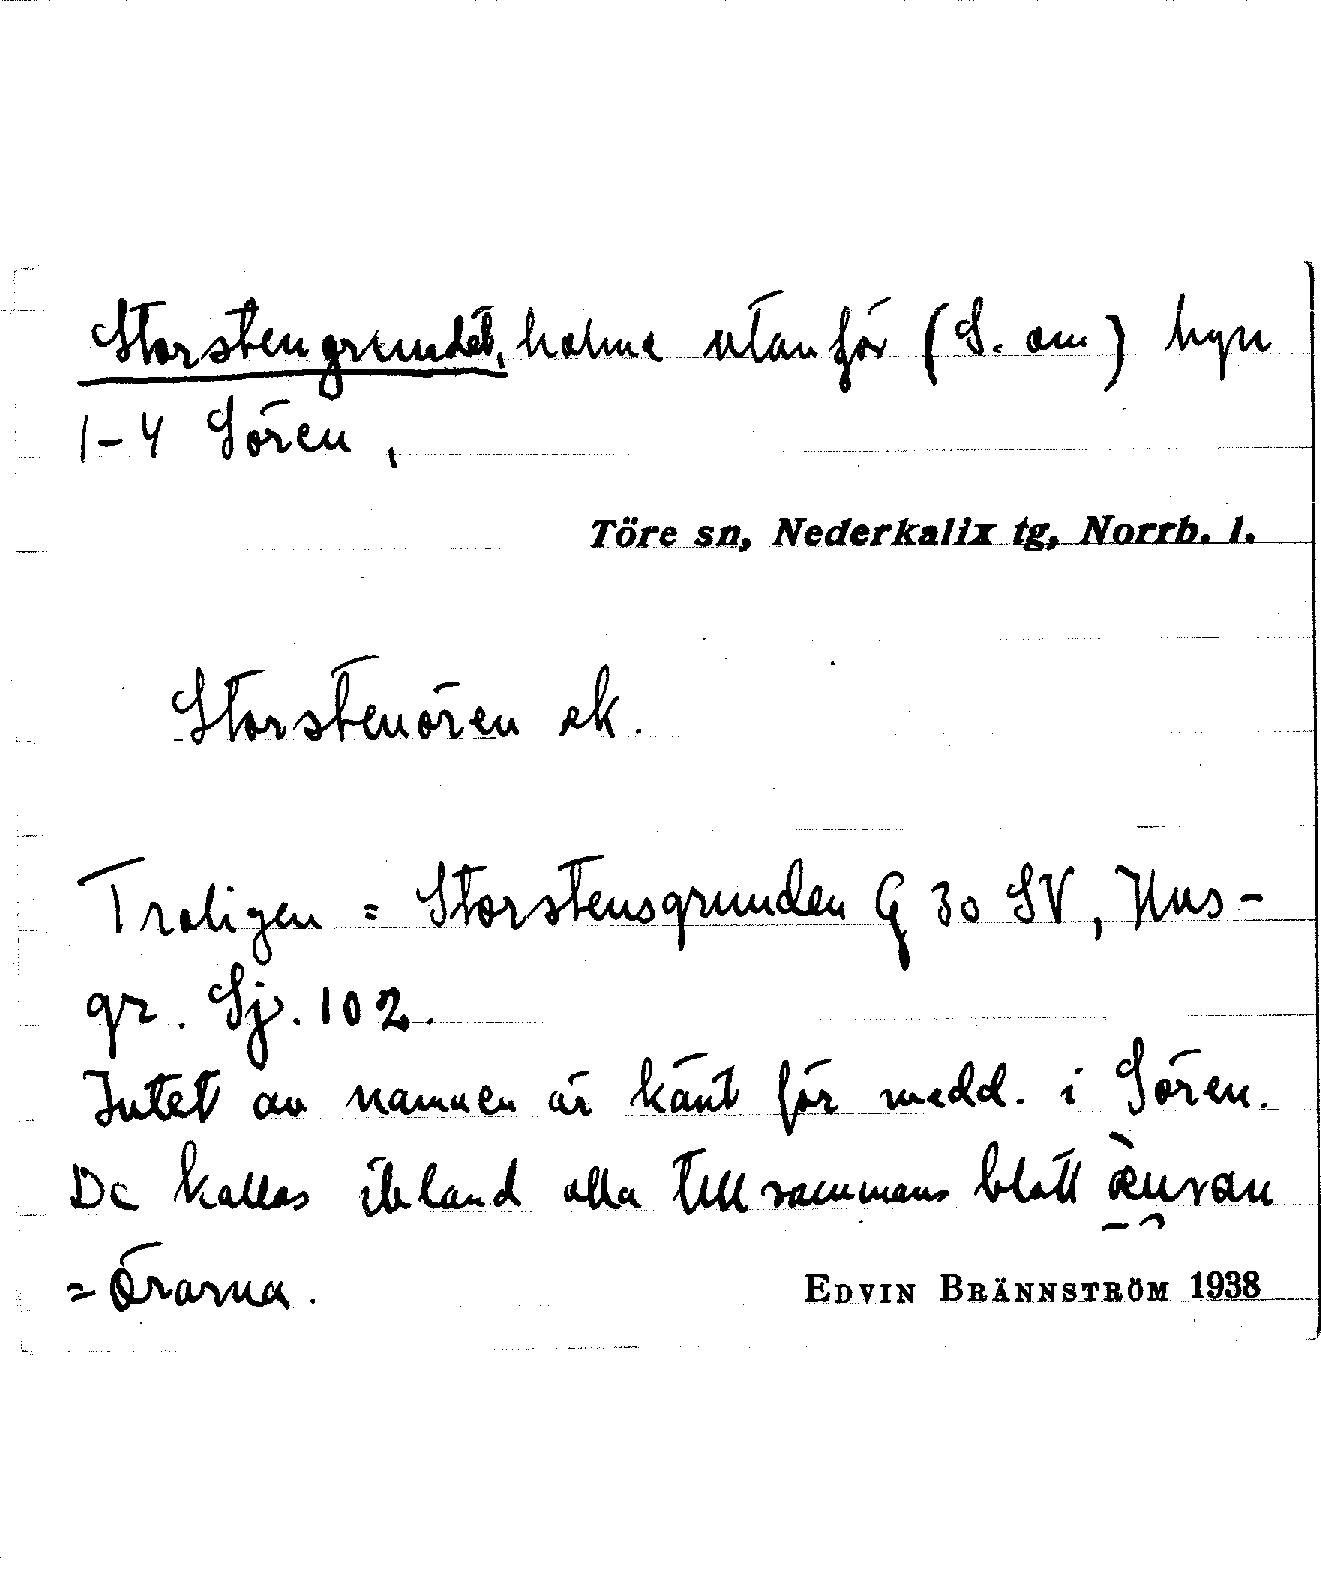 Storstengrundet, holme utanför (S. om) hpn
1-4 Sören,
Töre sn, Nederkalix tg, Norrb. l.
Storstenören ek.
Troligen = Storstensgrunden G 30 SV, Hus-
gr. Sj. 102.
Intet av namnen är känt för medd. i Sören.
De kallas ibland alla tillsammans blott
= Örarna.
EDVIN BRÄNNSTRÖM 1938